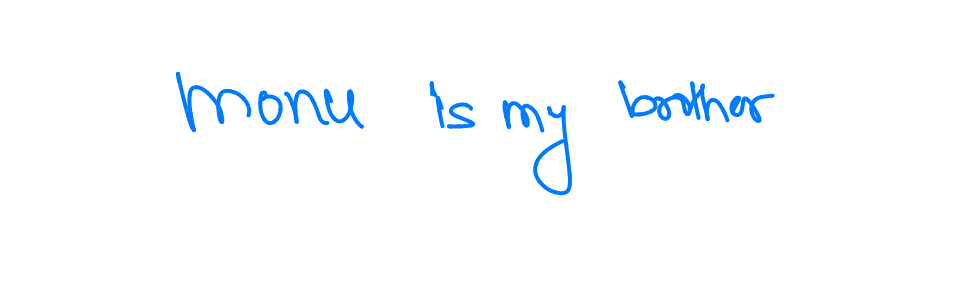 Monu is my brother